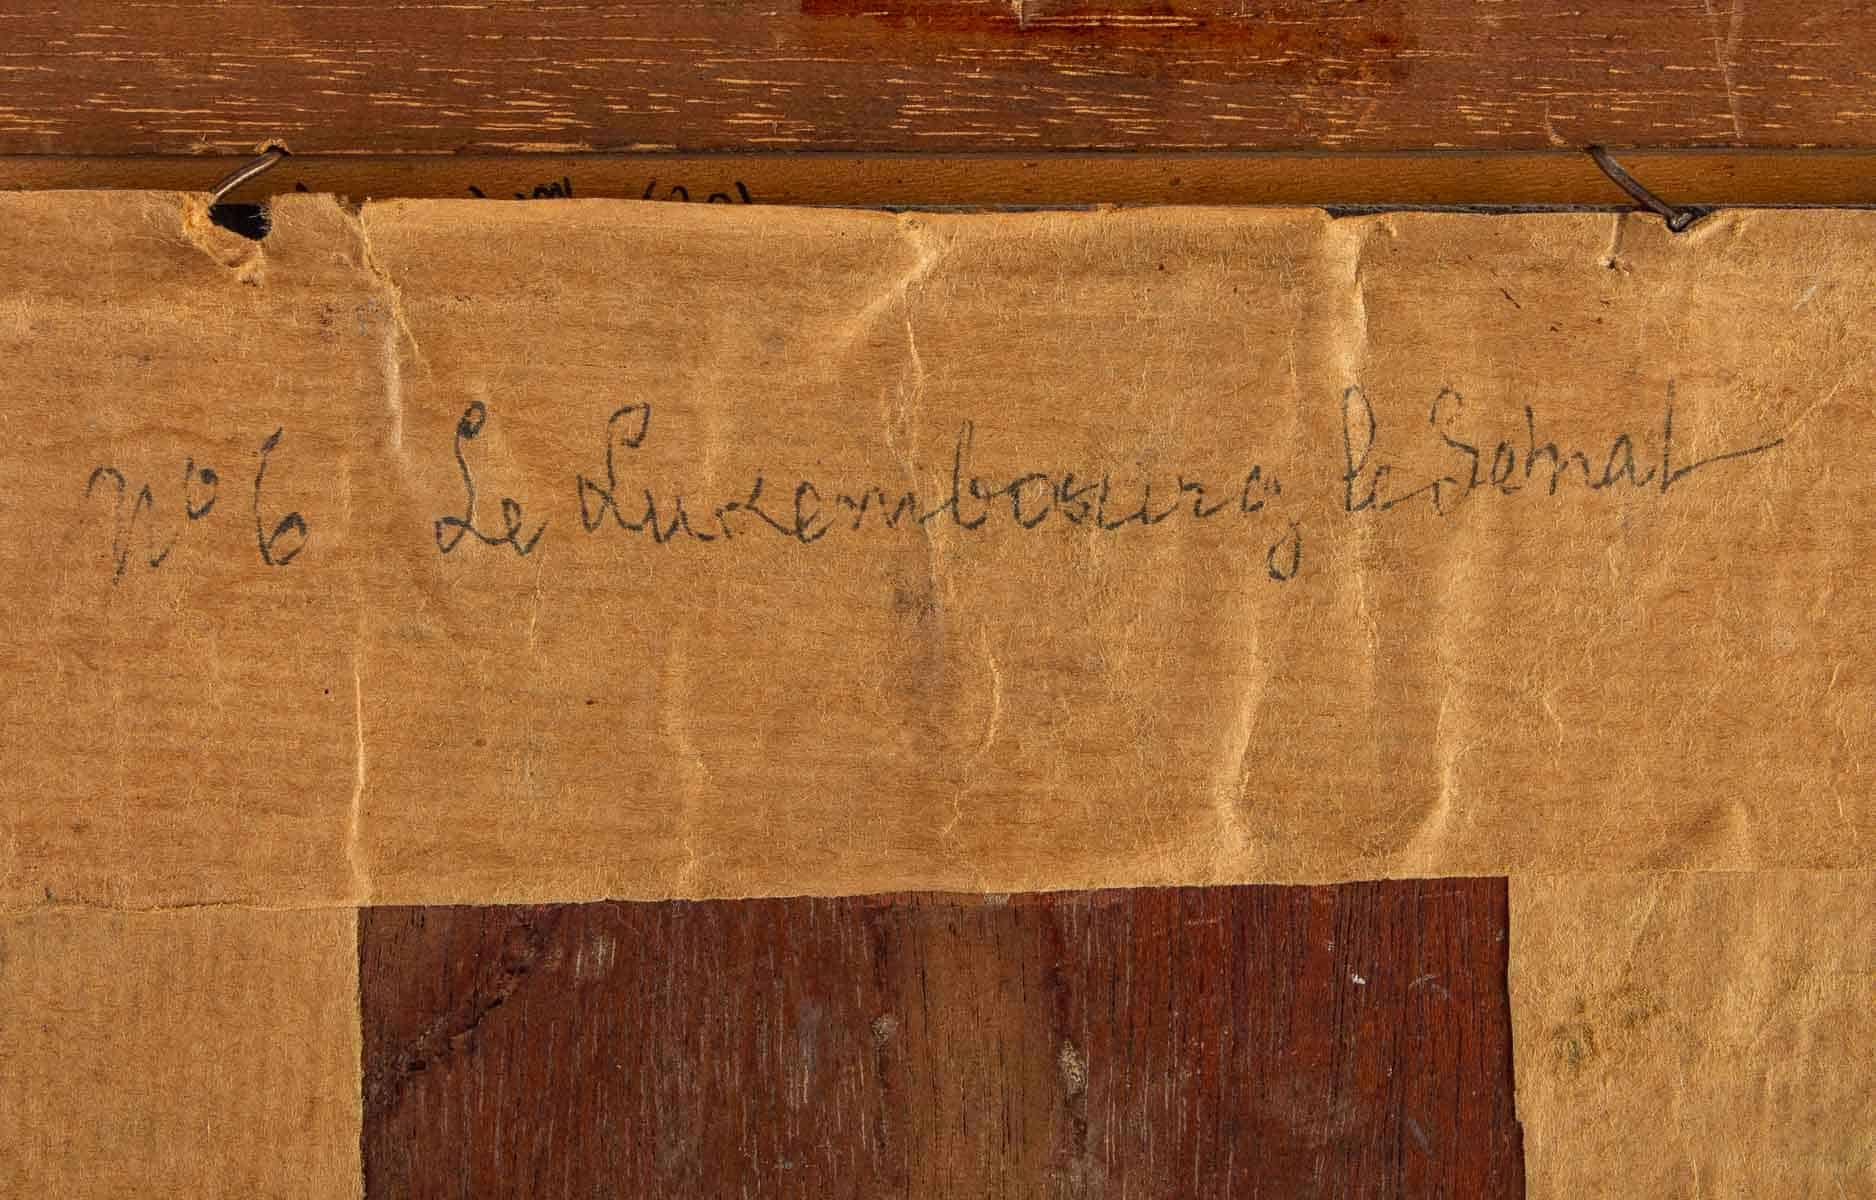 No 6 Le Luxembourg le Sénat